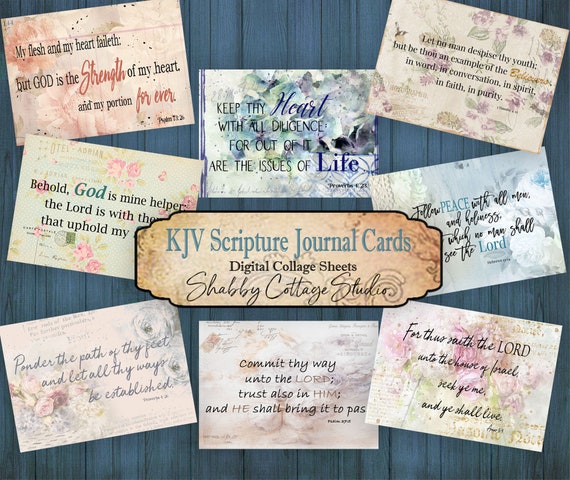 My flesh and my heart faileth:
but GOD is the Strength of my heart,
and my portion for ever.
Psalm 73:26
KEEP THY Heart
WITH ALL DILIGENCE;
FOR OUT OF IT
ARE THE ISSUES OF Life
Proverbs 4:23
Let no man despise thy youth;
but be thou an example of the Believers,
in word, in conversation, in spirit,
in faith, in purity.
Behold, God is mine helper
the Lord is with the
that uphold my
Follow PEACE with all men,
and holiness,
which no man shall
see the Lord
KJV Scripture Journal Cards
Digital Collage Sheets
Shabby Cottage Studio
Ponder the path of thy feet,
and let all thy ways
be established.
Proverbs 4:26
Commit thy way
unto the LORD;
trust also in HIM;
and HE shall bring it to pas
Psalm 37:5
For thus saith the LORD
unto the house of Israel,
Seek ye me,
and ye shall live.